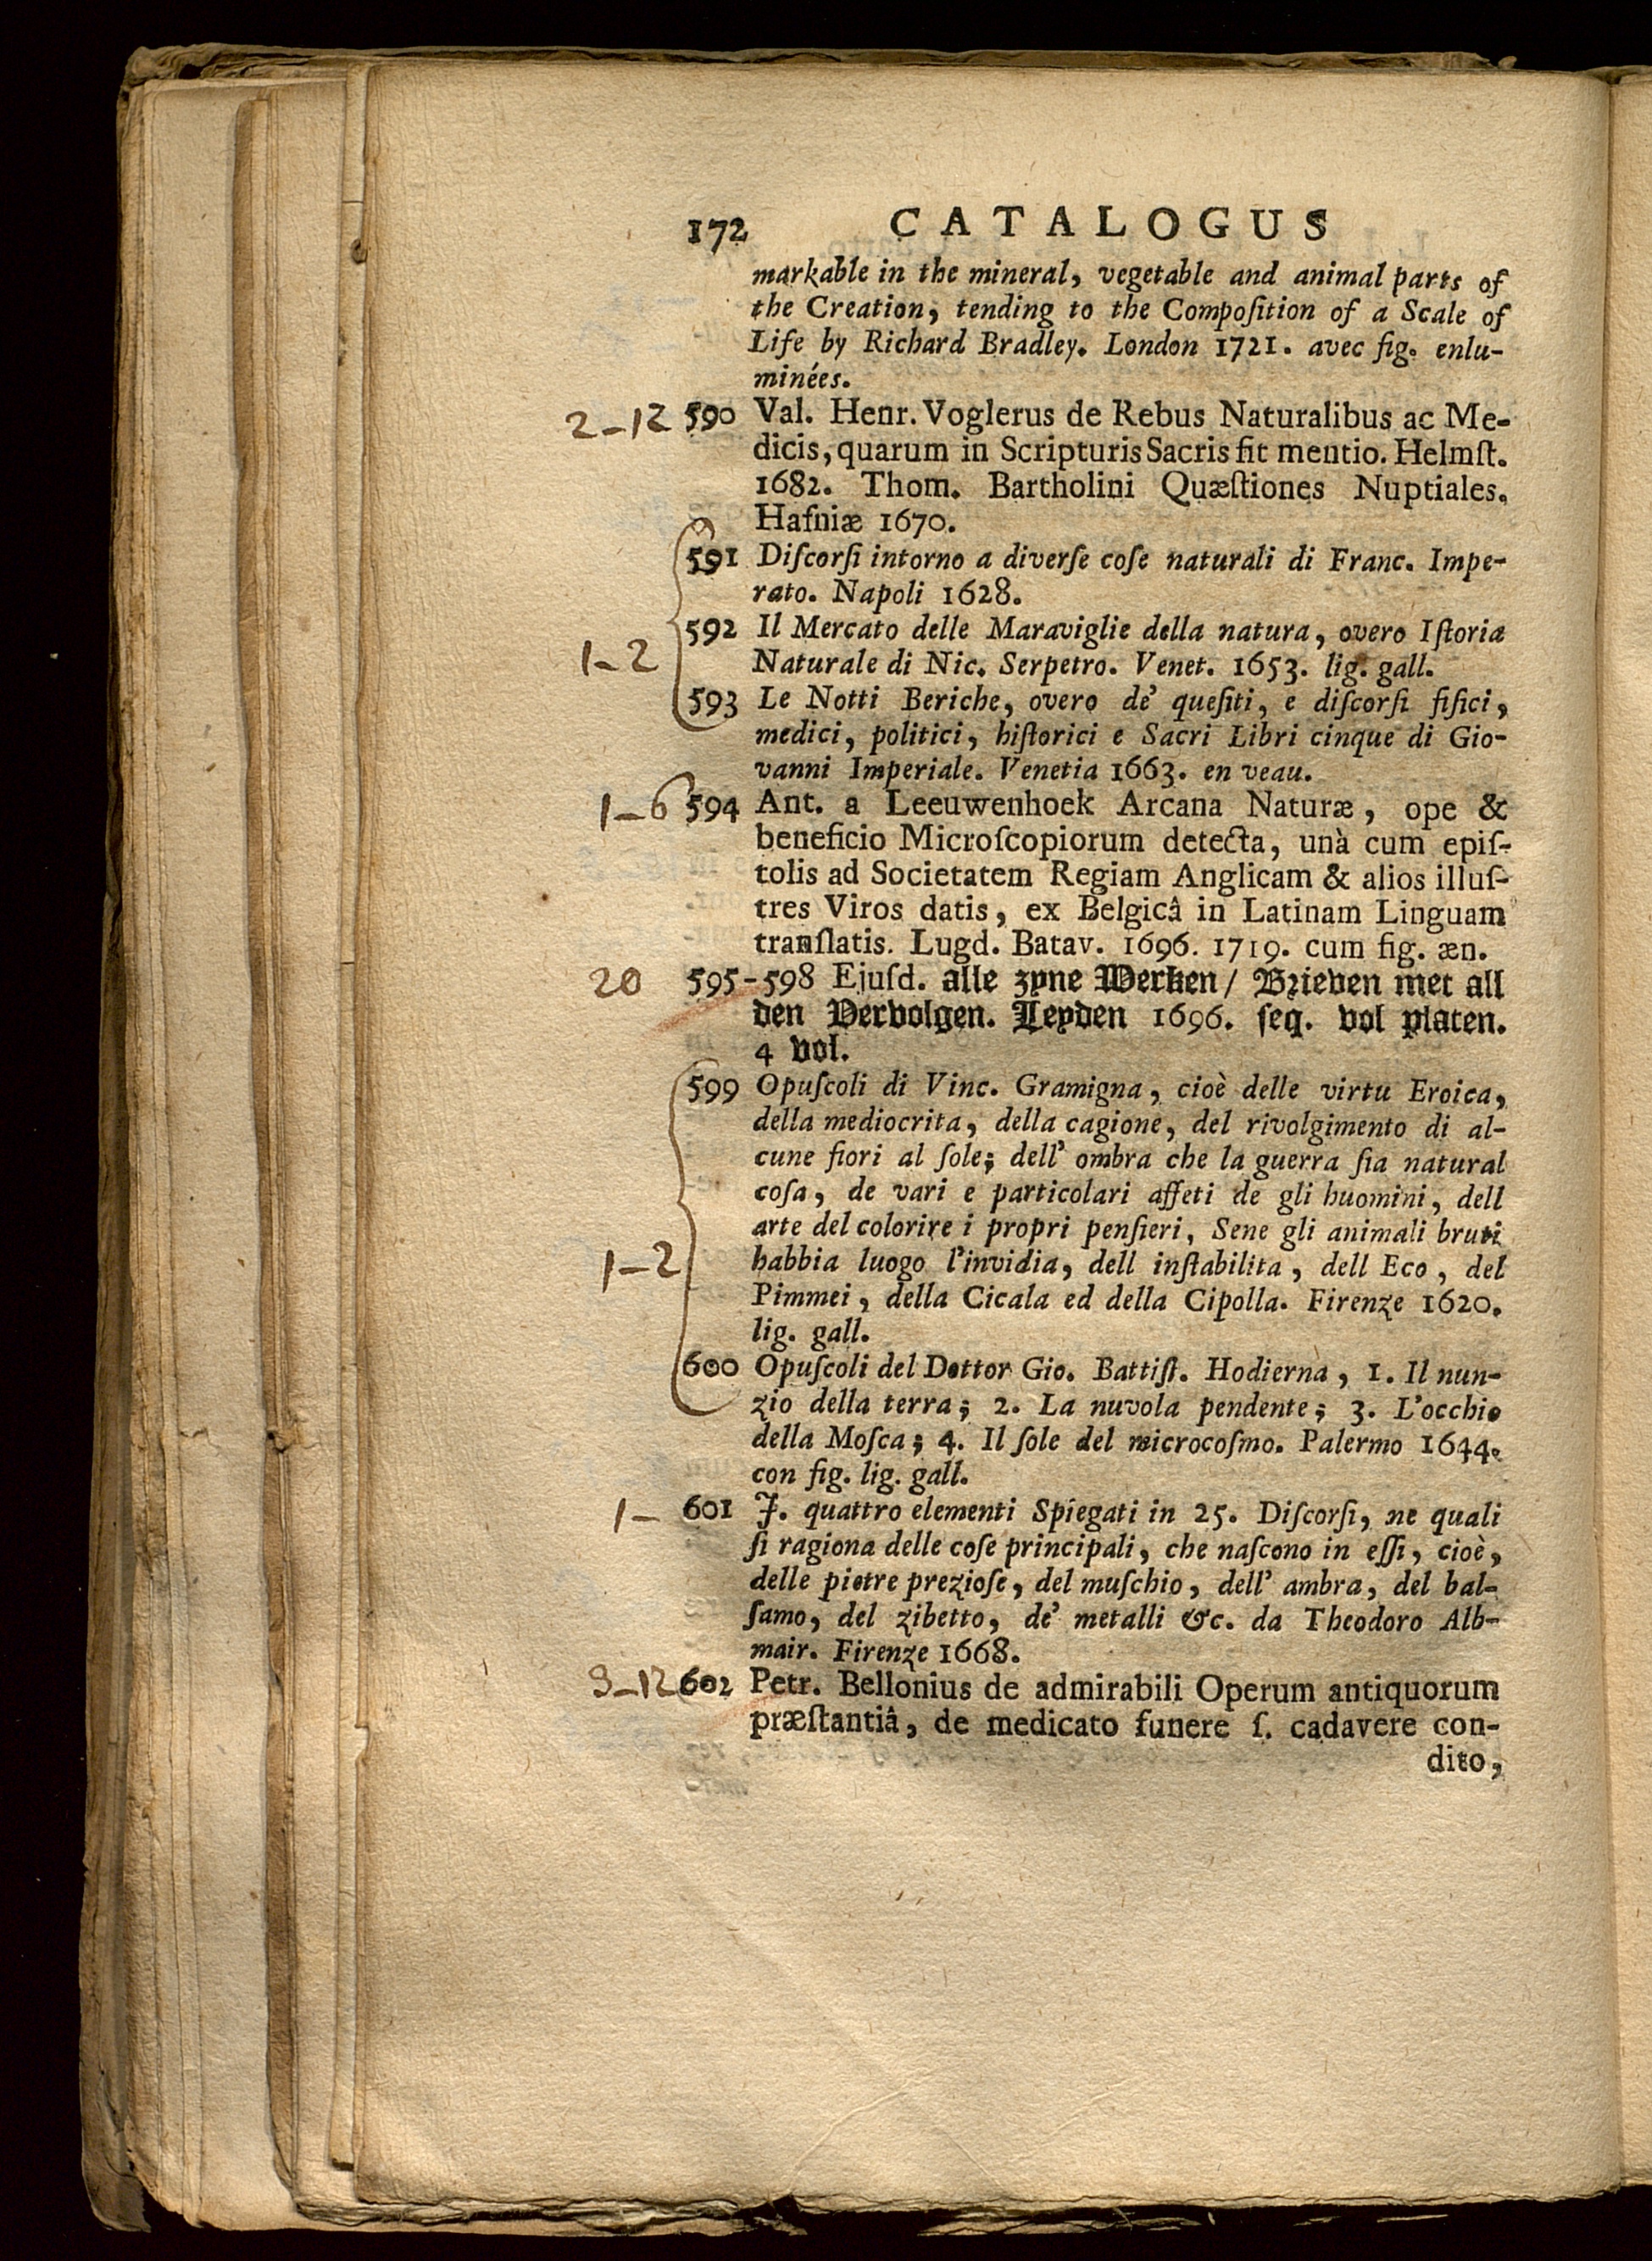 172 CATALOGUS
markable in the mineral, vegetable and animal parts of
the Creation, tending to the Compoſition of a Scale of
Life by Richard Bradley. London 1721. avec fig. enlu-
minées.
2-12 590 Val. Henr. Voglerus de Rebus Naturalibus ac Me-
dicis, quarum in Scripturis Sacris fit mentio. Helmſt.
1682. Thom. Bartholini Quæſtiones Nuptiales.
Hafniæ 1670.
591 Diſcorſi intorno a diverſe coſe naturali di Franc. Impe-
rato. Napoli 1628.
592 Il Mercato delle Maraviglie della natura, overo Iſtoria
1-2 Naturale di Nic. Serpetro. Venet. 1653. lig. gall.
593 Le Notti Beriche, overo de' queſiti, e diſcorſi fiſici,
medici, politici, hiſtorici e Sacri Libri cinque di Gio-
vanni Imperiale. Venetia 1663. en veau.
1-6 594 Ant. a Leeuwenhoek Arcana Naturæ, ope &
beneficio Microſcopiorum detecta, unà cum epiſ-
tolis ad Societatem Regiam Anglicam & alios illuſ-
tres Viros datis, ex Belgicâ in Latinam Linguam
tranſlatis. Lugd. Batav. 1696. 1719. cum fig. æn.
20 595-598 Ejuſd. alle zyne Werken / Brieven met all
den Vervolgen. Leyden 1696. ſeq. vol platen.
4 vol.
599 Opuſcoli di Vinc. Gramigna, cioè delle virtu Eroica,
della mediocrita, della cagione, del rivolgimento di al-
cune fiori al ſole; dell' ombra che la guerra ſia natural
coſa, de vari e particolari affeti de gli huomini, dell
arte del colorire i propri penſieri, Sene gli animali bruti
1-2 habbia luogo l'invidia, dell inſtabilita, dell Eco, del
Pimmei, della Cicala ed della Cipolla. Firenze 1620.
lig. gall.
600 Opuſcoli del Dottor Gio. Battiſt. Hodierna, 1. Il nun-
zio della terra; 2. La nuvola pendente; 3. L'occhio
della Moſca; 4. Il ſole del microcoſmo. Palermo 1644.
con fig. lig. gall.
1- 601 J. quattro elementi Spiegati in 25. Diſcorſi, ne quali
ſi ragiona delle coſe principali, che naſcono in eſſi, cioè,
delle pietre prezioſe, del muſchio, dell' ambra, del bal-
ſamo, del zibetto, de' metalli &c. da Theodoro Alb-
mair. Firenze 1668.
3-12 602 Petr. Bellonius de admirabili Operum antiquorum
præſtantiâ, de medicato funere ſ. cadavere con-
dito,